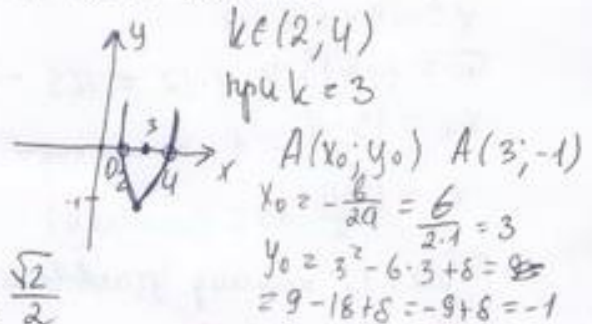 y
k∈(2;4)
при k = 3
3
0 2 4 x
-1
A(x₀;y₀) A(3;-1)
x₀ = -b/2a = 6/2·1 = 3
y₀ = 3² - 6·3 + 8 =
= 9 - 18 + 8 = -9 + 8 = -1
√2/2